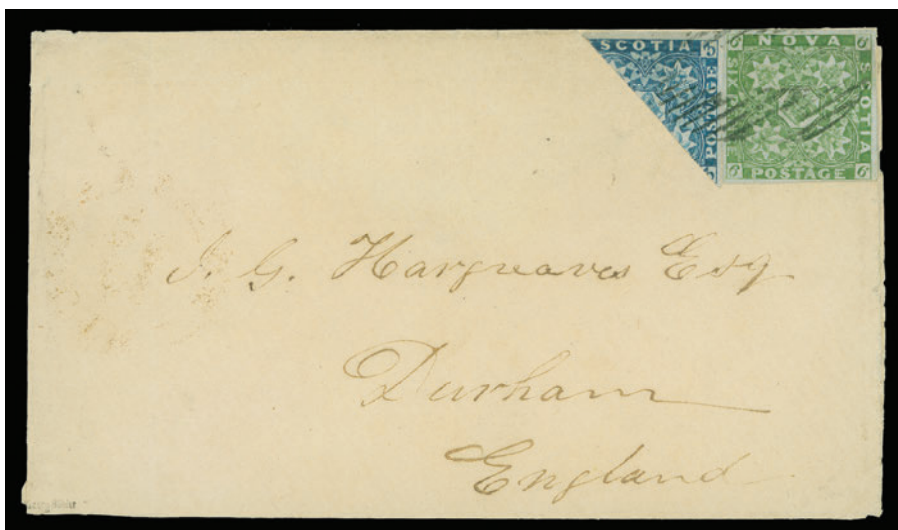 SCOTIA
POSTAGE
6 NOVA 6
SCOTIA
POSTAGE
6 6
J. G. Hargreaves Esq
Durham
England